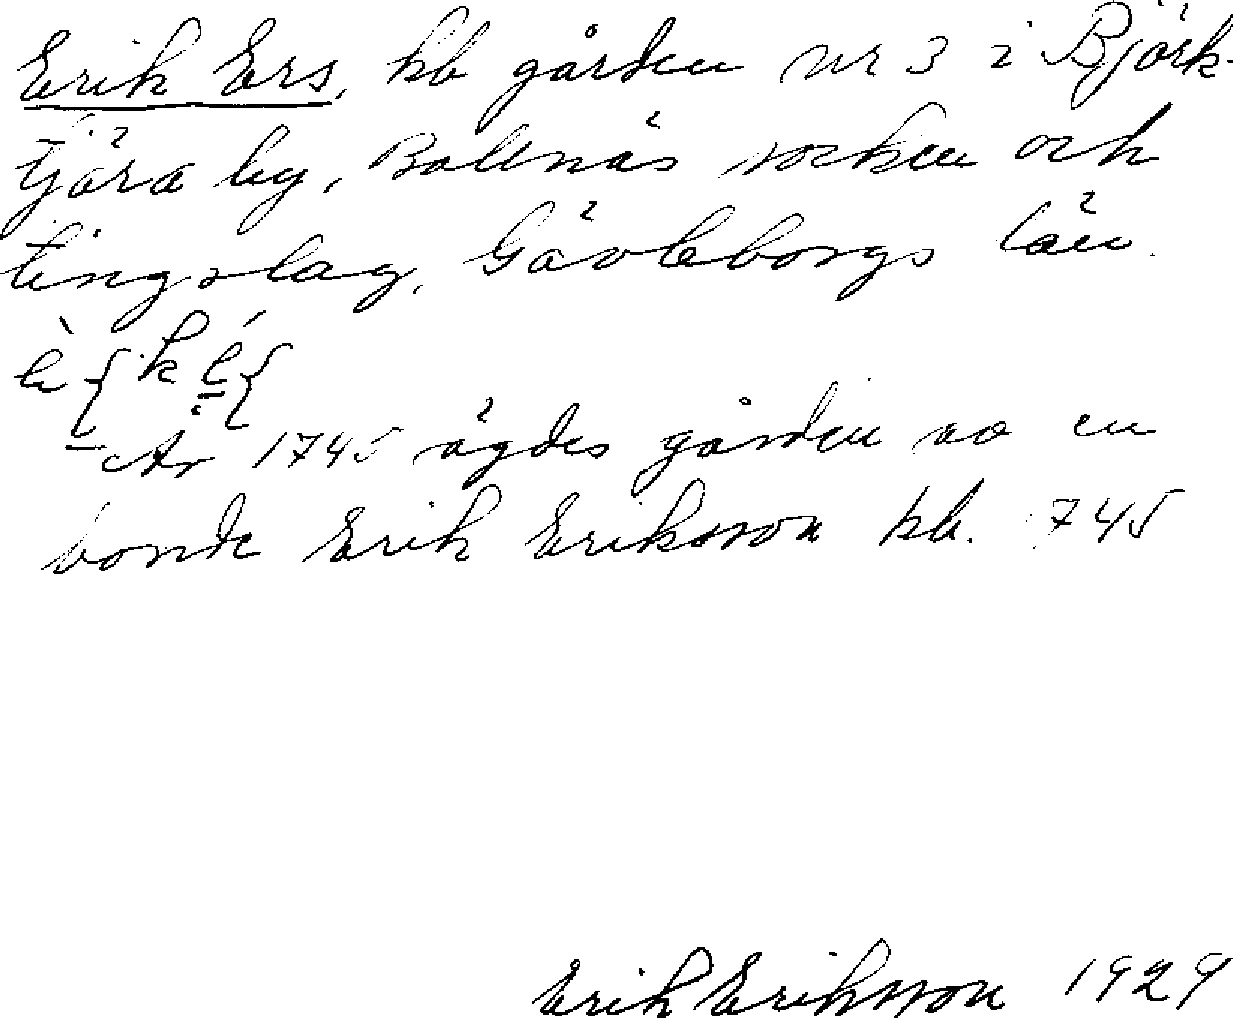 Erik Ers, kb gården nr 3 i Björk-
tjära by, Bollnäs socken och
tingslag, Gävleborgs län.
År 1745 ägdes gården av en
bonde Erik Eriksson kb. 1745
Erik Eriksson 1929